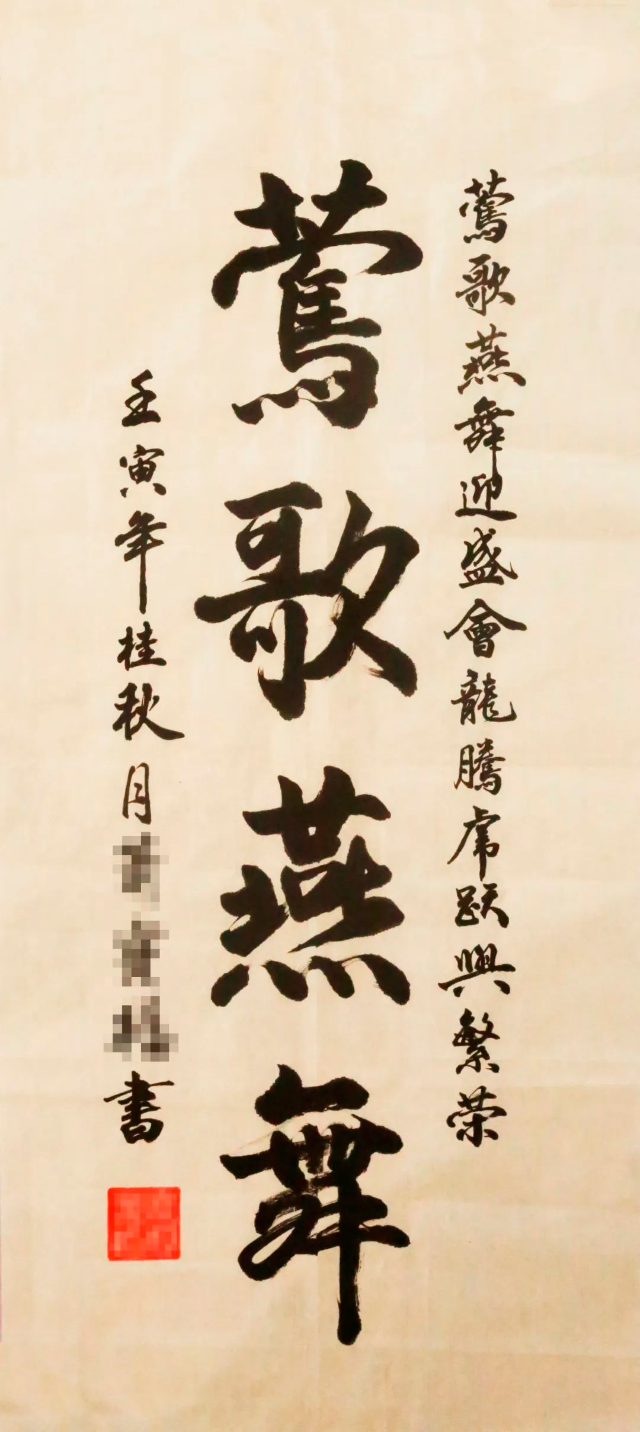 鶯歌燕舞迎盛會龍騰虎跃興繁荣
鶯歌燕舞
壬寅年桂秋月
書